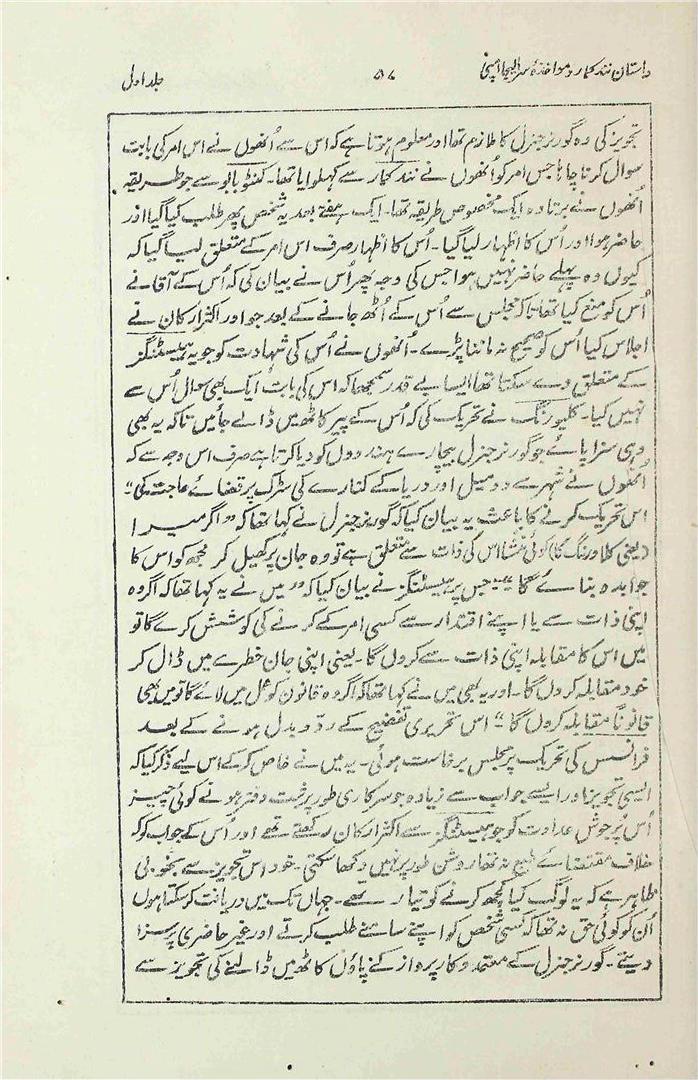 داستان نند کمار و مواخذہ سر الیجا امپی
۵۷
جلد اول
تجویز کی وہ گورنر جنرل کا ملازم تھا اور معلوم ہوتا ہے کہ اس سے اُنھوں نے اس امر کی بابت
سوال کرنا چاہا جس امر کو اُنھوں نے نند کمار سے کہلوایا تھا۔ کنٹو بابو سے جو طریقہ
اُنھوں نے برتا وہ ایک مخصوص طریقہ تھا۔ ایک ہفتے بعد یہ شخص پھر طلب کیا گیا اور
حاضر ہوا اور اُس کا اظہار لیا گیا۔ اُس کا اظہار صرف اس امر کے متعلق لیا گیا کہ
کیوں وہ پہلے حاضر نہیں ہوا جس کی وجہ پھر اُس نے بیان کی کہ اُس کے آقا نے
اُس کو منع کیا تھا تاکہ مجلس سے اُس کے اُٹھ جانے کے بعد جو اور اکثر ارکان نے
اجلاس کیا اُس کو صحیح نہ ماننا پڑے۔ اُنھوں نے اُس کی شہادت کو جو یہ ہیسٹنگز
کے متعلق دے سکتا تھا ایسا بے قدر سمجھا کہ اس کی بابت ایک بھی سوال اُس سے
نہیں کیا۔ کلیورنگ نے تحریک کی کہ اُس کے پیر کاٹھ میں ڈالے جائیں تاکہ یہ بھی
وہی سزا پائے جو گورنر جنرل بیچارے ہندووں کو دیا کرتا ہے صرف اس وجہ سے کہ
اُنھوں نے شہر سے دو میل اور دریا کے کنارے کی سڑک پر قضائے حاجت کی“
اس تحریک کرنے کا باعث یہ بیان کیا کہ گورنر جنرل نے کہا تھا کہ ”اگر میرا
(یعنی کلاورنگ کا) کوئی منشا اس کی ذات سے متعلق ہے تو وہ جان پر کھیل کر مجھ کو اس کا
جوابدہ بنائے گا“ جس پر ہیسٹنگز نے بیان کیا کہ ”میں نے یہ کہا تھا کہ اگر وہ
اپنی ذات سے یا اپنے اقتدار سے کسی امر کے کرنے کی کوشش کرے گا تو
میں اس کا مقابلہ اپنی ذات سے کروں گا۔ یعنی اپنی جان خطرے میں ڈال کر
خود مقابلہ کروں گا۔ اور یہ بھی میں نے کہا تھا کہ اگر وہ قانون کو عمل میں لائے گا تو میں بھی
قانوناً مقابلہ کروں گا“ اس تحریری تفضیح کے ردّ و بدل ہونے کے بعد
فرانسس کی تحریک پر مجلس برخاست ہوئی۔ یہ میں نے خاص کر کے اس لیے ذکر کیا کہ
ایسی تجویز اور ایسے جواب سے زیادہ جو سرکاری طور پر ثبت دفتر ہونے کوئی چیز
اُس پُر جوش عداوت کو جو ہیسٹنگز سے اکثر ارکان رکھتے تھے اور اس کے جواب کو کہ
خلاف مقتضائے طبع نہ تھا روشن طور پر نہیں دکھا سکتی۔ خود اس تجویز سے بخوبی
ظاہر ہے کہ یہ لوگ کیا کچھ کرنے کو تیار تھے۔ جہاں تک میں دریافت کر سکتا ہوں
اُن کو کوئی حق نہ تھا کہ کسی شخص کو اپنے سامنے طلب کرتے اور غیر حاضری پر سزا
دیتے۔ گورنر جنرل کے معتمد و کار پرواز کے پاؤں کاٹھ میں ڈالنے کی تجویز سے